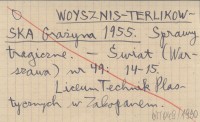 WOYSZNIS-TERLIKOW-
SKA Grażyna 1955. Sprawy
tragiczne. - Świat (War-
szawa) nr 49: 14-15.
Liceum Technik Plas-
tycznych w Zakopanem.